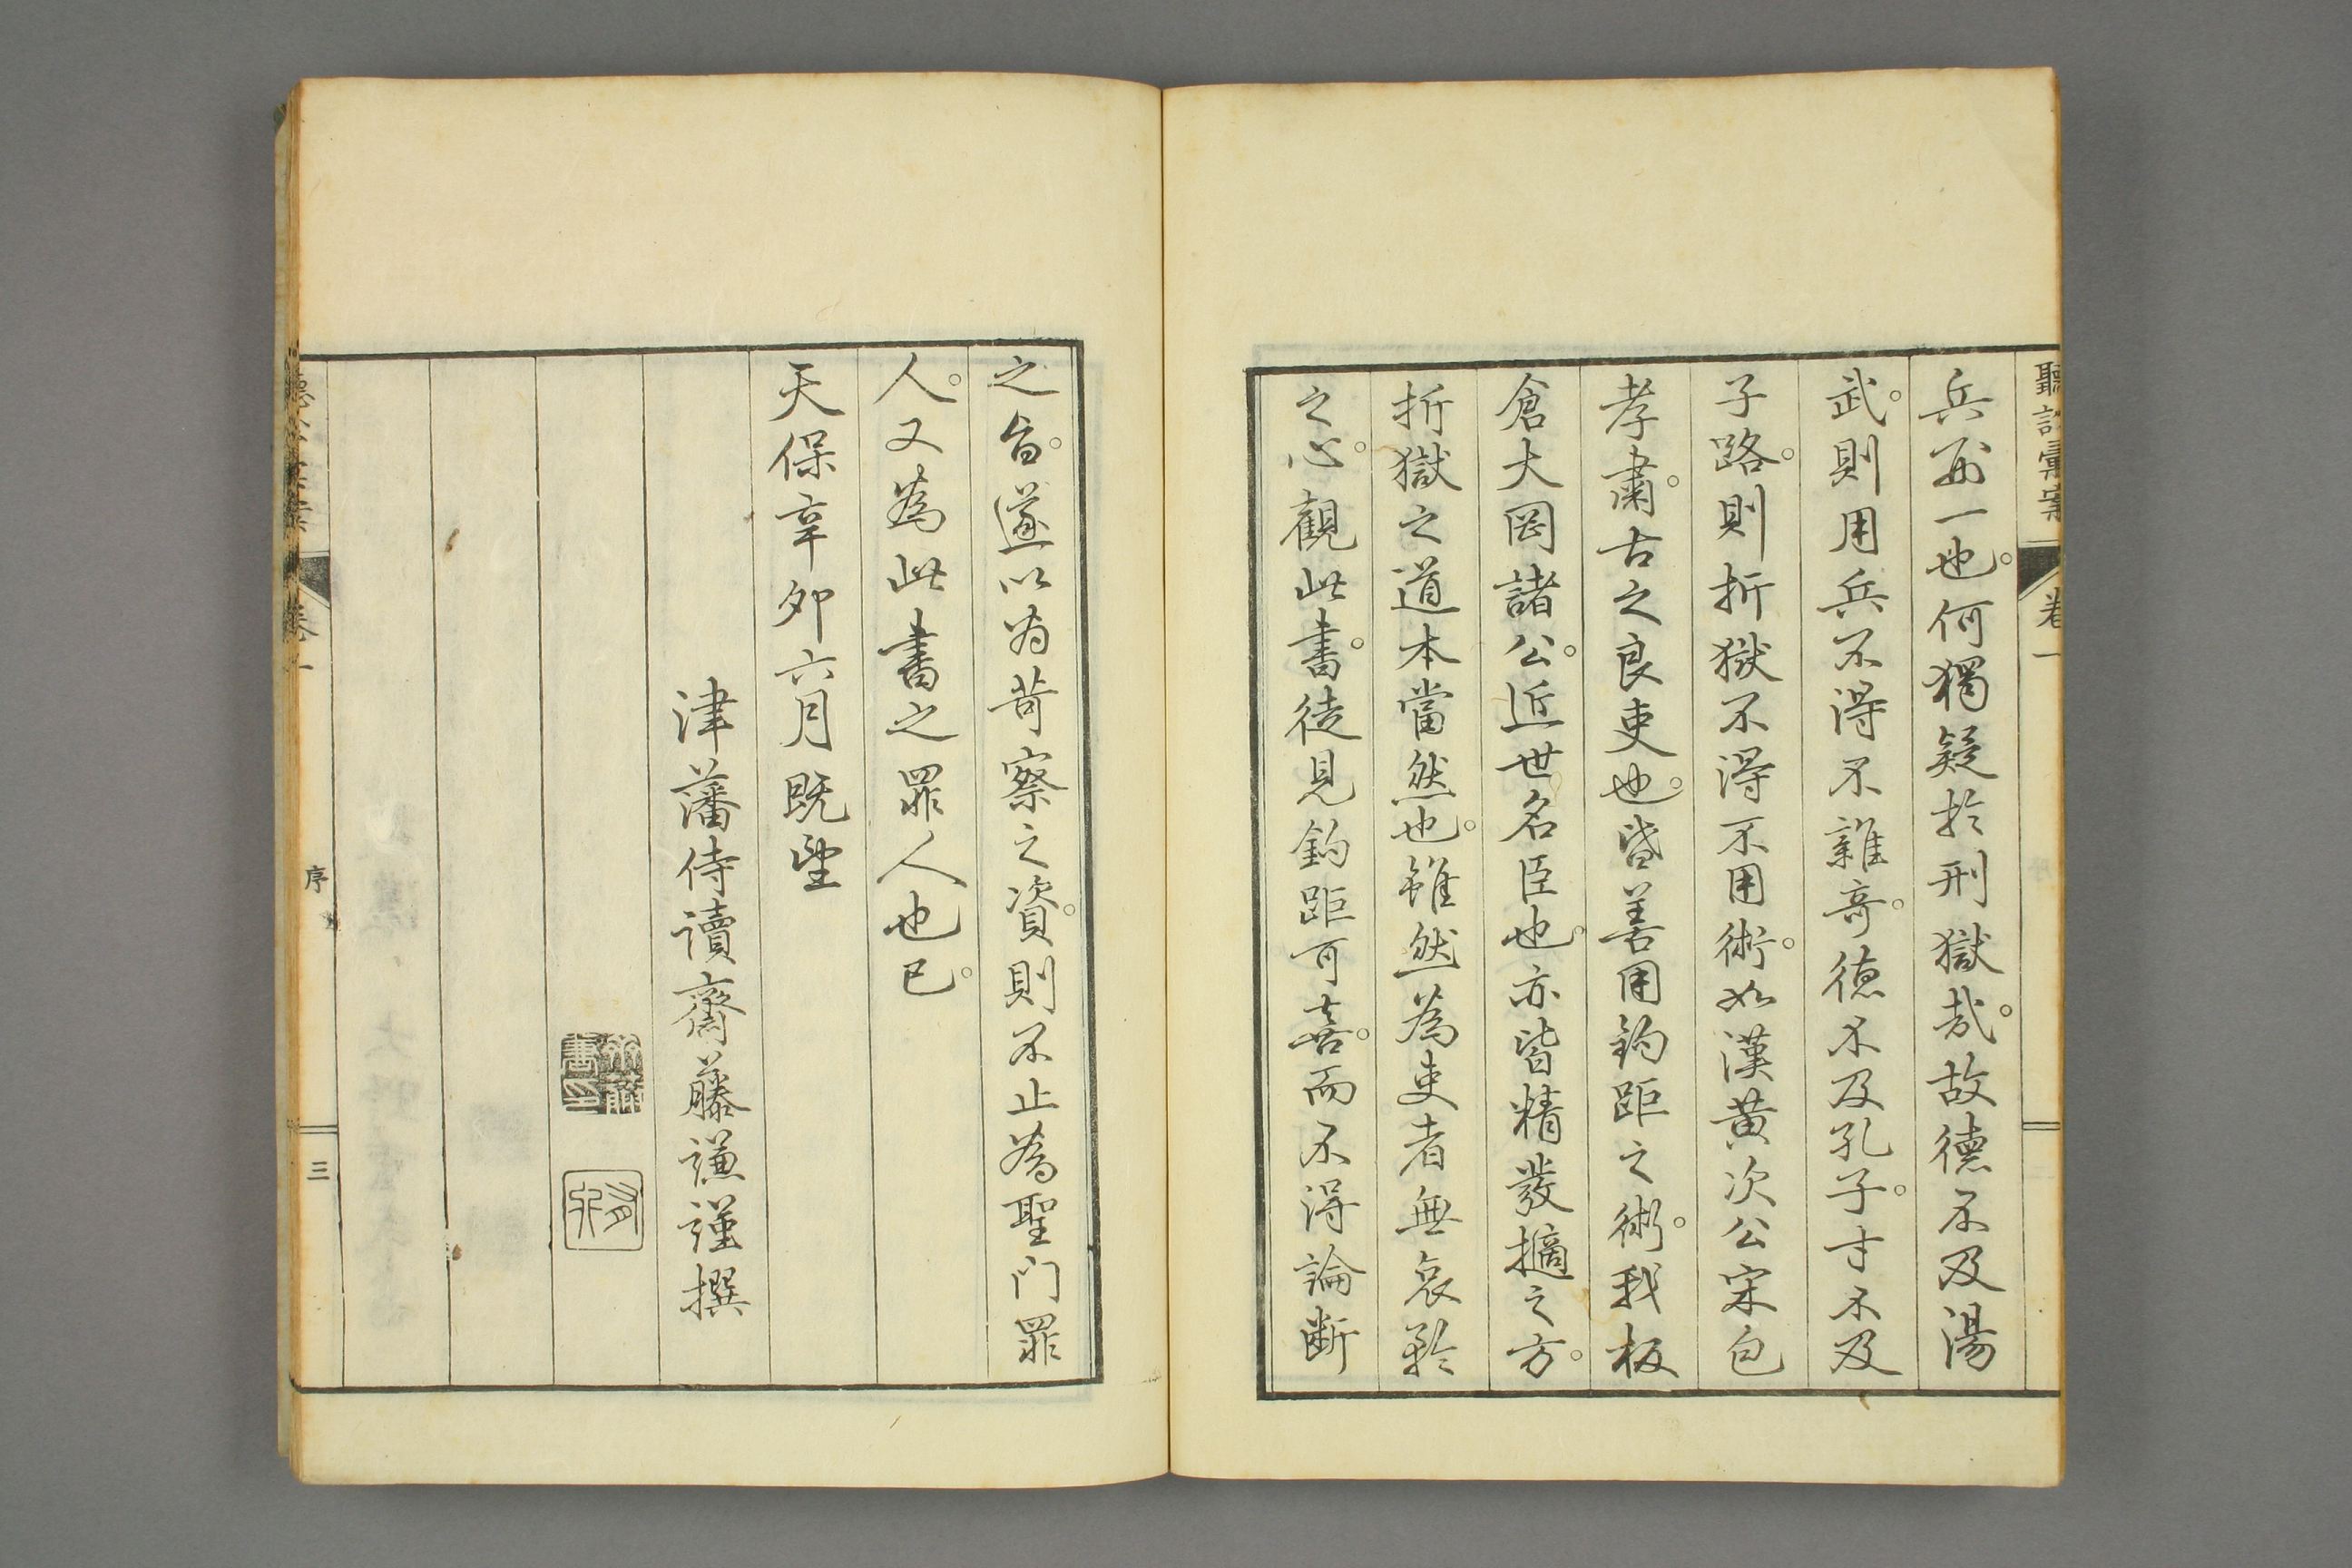 聽訟彙案
卷一
兵刑一也。何獨疑於刑獄哉。故德不及湯
武。則用兵不得不雜奇。德不及孔子。才不及
子路。則折獄不得不用術。如漢黃次公宋包
孝肅。古之良吏也。皆善用鈎距之術。我板
倉大岡諸公。近世名臣也。亦皆精發摘之方。
折獄之道本當然也。雖然為吏者無哀矜
之心。觀此書。徒見鈎距可喜。而不得論斷
之旨。遂以為苛察之資。則不止為聖門罪
人。又為此書之罪人也已。
天保辛卯六月既望
津藩侍讀齋藤謙謹撰
聽訟彙案
卷一
序
三